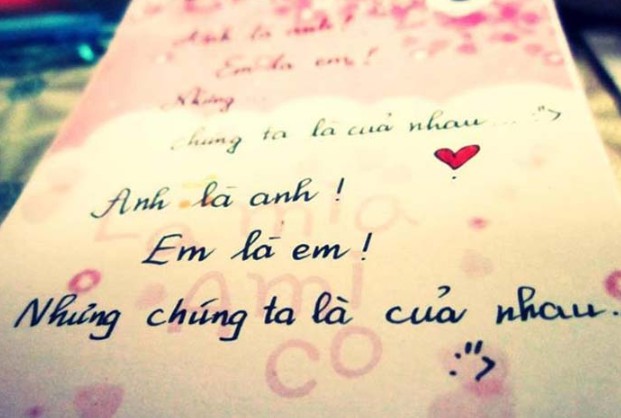 Anh là anh!
Em là em!
Nhưng
chúng ta là của nhau... :">
Anh là anh!
Em là em!
Nhưng chúng ta là của nhau.
:">
La mia
Ami
co